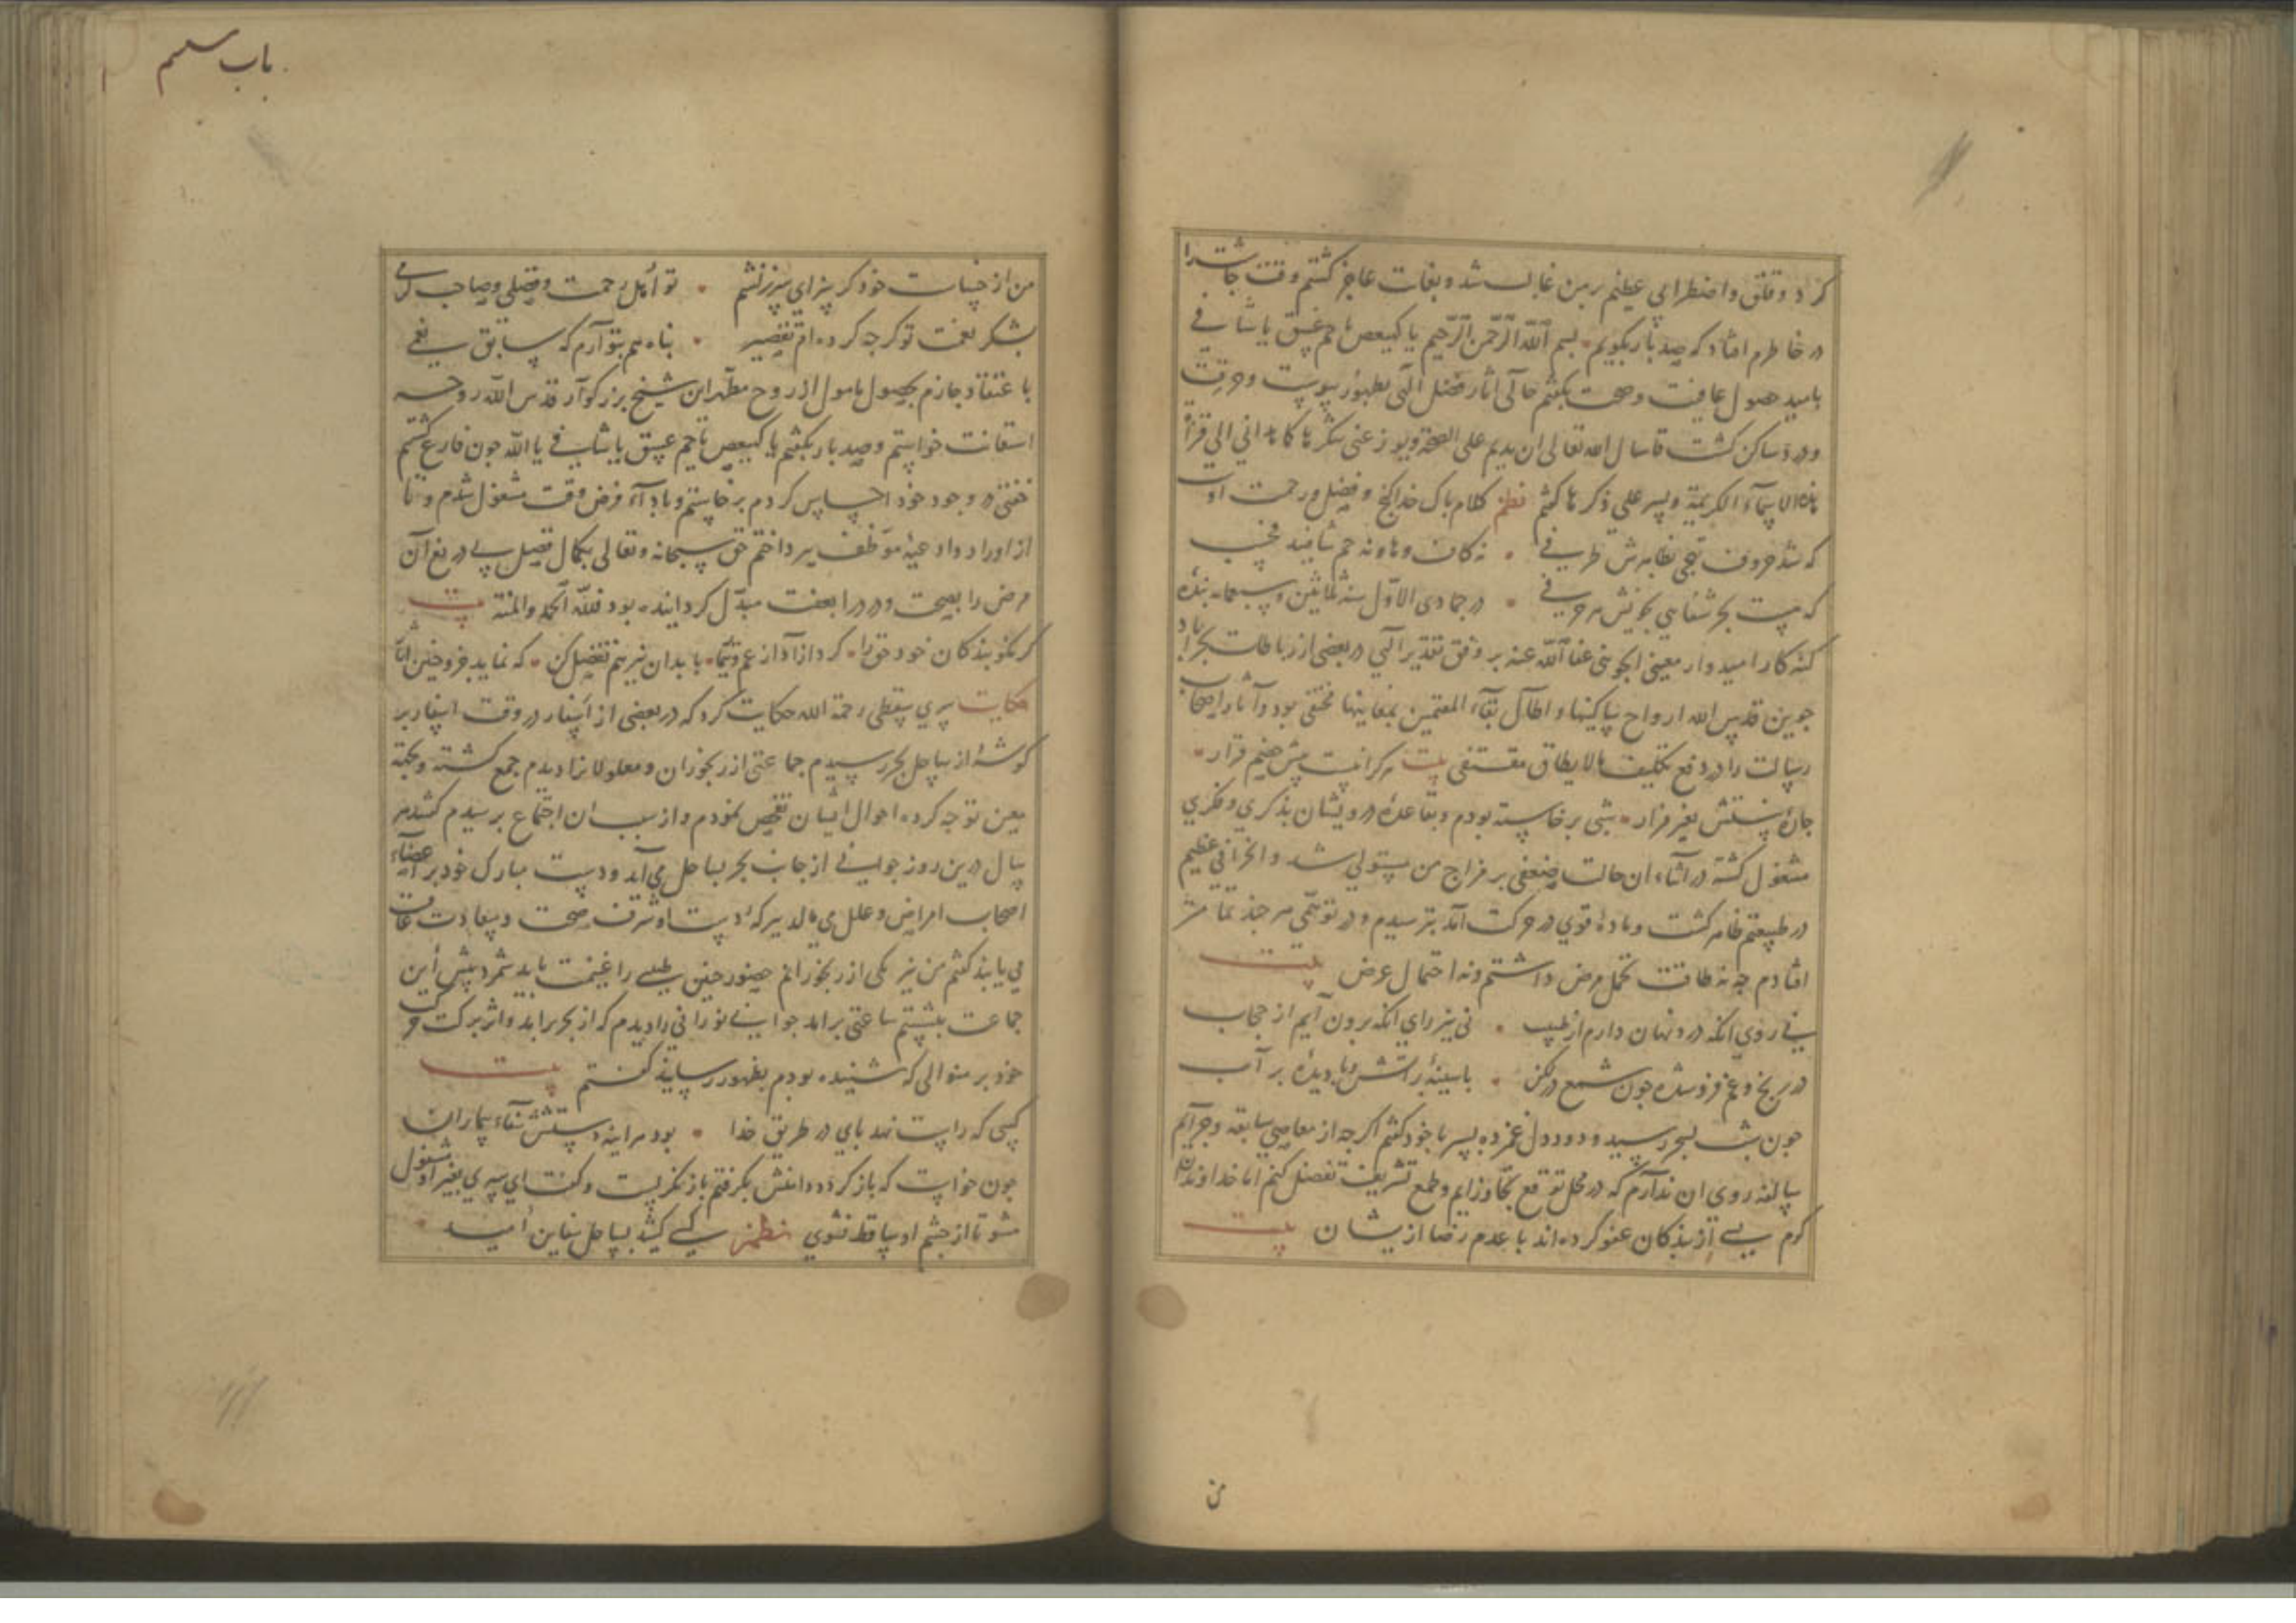 کرد و قلق و اضطرابی عظیم بر من غالب شد و بغایت عاجز کشتم وقت جاشت را
در خاطرم افتاد که صد بار بکویم بسم الله الرحمن الرحیم یا کهیعص یا حم عسق یا شافی
بامید حصول عافیت و صحت بکفتم حالی آثار فضل الهی بظهور پیوست و حرقت
و درد ساکن کشت فاسال الله تعالی ان یدیم علی الصحة و یوزعنی شکرها کما هدانی الی قراة
هذه الاسماء الکریمة و یسر علی ذکرها کفتم نظم کلام باک خدا و فضل و رحمت اوست
که شد حروف تهجی بظاهرش ظرفی نه کاف و ها و نه حم شافیند
که هست بحر شفایی بحویش هر حرفی در جمادی الاول سنه ثلاثین و سبعمایه بنده
کنه کار امیدوار معینی الجوینی عفا الله عنه بر وفق تقدیر الهی در بعضی از رباطات بحراباد
جوین قدس الله ارواح ساکنیها و اطال بقاء المقیمین بمغانیها مختفی بود و آثار اصحاب
رسالت را در دفع تکلیف مالایطاق مقتفی بیت هرکرا نیست پیش خصم قرار
جارۀ نیستش بغیر فرار شبی برخاسته بودم و بقاعدۀ درویشان بذکری و فکری
مشغول کشته در اثناء ان حالت ضعفی بر مزاج من مستولی شد و انحرافی عظیم
در طبیعتم ظاهر کشت و مادۀ قوی در حرکت آمد بترسیدم و در توهمی هرجه تمامتر
افتادم جه نه طاقت تحمل مرض داشتم و نه احتمال عرض بیت
نی روی انکه درد نهان دارم از طبیب نی رای انکه برون آیم از حجاب
در رنج و غم فروشده جون شمع در لکن با سینۀ بر آتش و با دیدۀ بر آب
جون شب بسحر رسید و دود دل غمزده بسر با خود کفتم اکرجه از معاصی سابقه و جرایم
سالفه روی ان ندارم که در محل توقع تجاوز ایم و طمع تشریف تفضل کنم اما خداوندان
کرم بسی از بندکان عفو کرده‌اند با عدم رضا از یشان بیت
من
باب سیم
من از خساست خود کر سزای سرزنشم تو اهل رحمت و فضلی و صاحب کرمی
بشکر نعمت تو کرجه کرده‌ام تقصیر بناه هم بتو آرم که سابق نعمی
باعتقاد جازم بحصول مامول از روح مطهر این شیخ بزرکوار قدس الله روحه
استعانت خواستم و صد بار بکفتم یا کهیعص یا حم عسق یا شافی یا الله جون فارغ کشتم
خفتی در وجود خود احساس کردم برخاستم و باداء فرض وقت مشغول شدم و تا
از اوراد و ادعیۀ موظف ببرداختم حق سبحانه و تعالی بکمال فضل بی دریغ آن
مرض را بصحت و درد را بعفت مبدل کردانیده بود فلله الحمد والمنة بیت
کر نکو بندکان خود حق را کرد ازآد از غم و تیمار با بدان نیز هم تفضل کن که نماید جز و جنین آثار
حکایت سری سقطی رحمة الله حکایت کرد که در بعضی از اسفار در وقت اسفار بر
کوشۀ از ساحل بحر رسیدم جماعتی از رنجوران و معلولانرا دیدم جمع کشته و بجهة
معین توجه کرده احوال ایشان تفحص نمودم و از سبب ان اجتماع برسیدم کفتند هر
سال درین روز جوانی از جانب بحر بساحل می‌آید و دست مبارک خود بر اعضاء
اصحاب امراض و علل می‌مالد ببرکۀ دست او شرف صحت و سعادت عافیت
می‌یابند کفتم من نیز یکی از رنجورانم حضور جنین طبیبی را غنیمت باید شمرد بیش این
جماعت بنشستم ساعتی برامد جوانی نورانی را دیدم که از بحر برامد و اثر برکت حرکت
خود بر منوالی که شنیده بودم بظهور رسانید کفتم بیت
کسی که راست نهد بای در طریق خدا بود هراینه دستش شفاء بیماران
جون خواست که باز کردد دامنش بکرفتم باز نکریست و کفت ای سری بغیر او مشغول
مشو تا از جشم او ساقط نشوی نظم کسی کشید بساحل سفاین امید